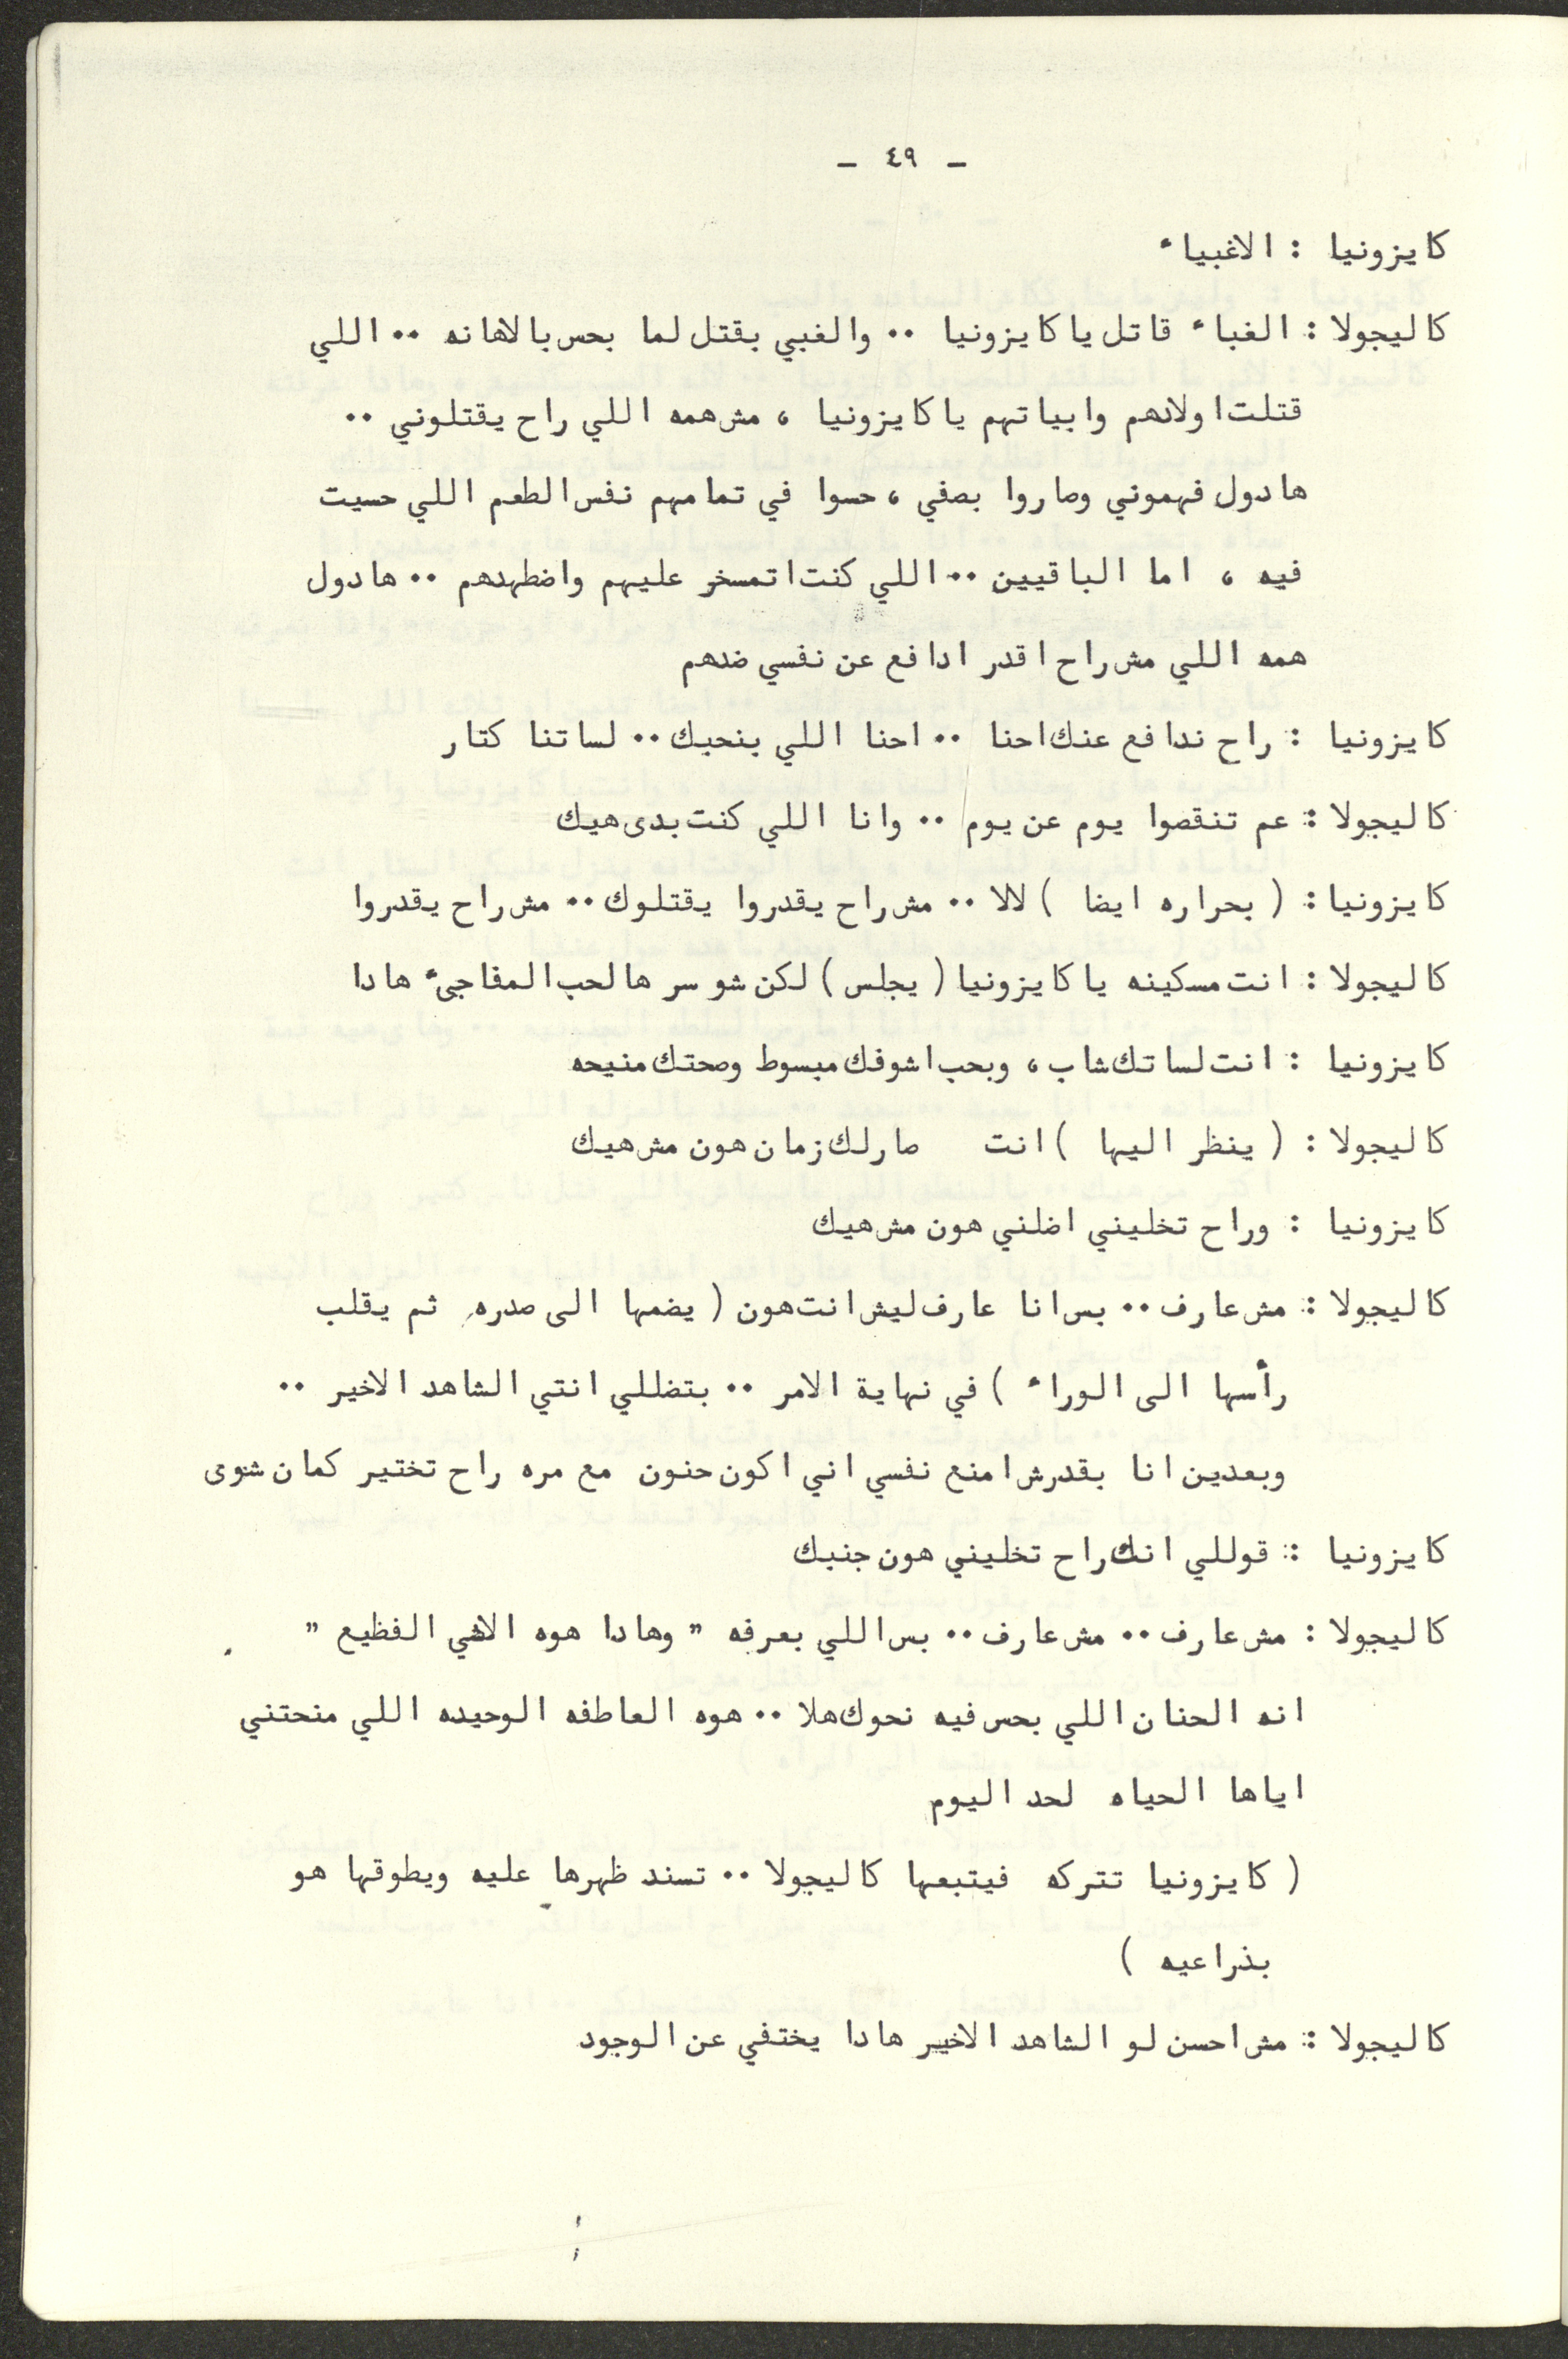 - ٤٩ -
كايزونيا : الاغبياء
كاليجولا : الغباء قاتل ياكايزونيا .. والغبي بقتل لما بحس بالاهانه .. اللي
قتلت اولادهم وابياتهم ياكايزونيا ، مش همه اللي راح يقتلوني ..
هادول فهموني وصاروا بصفي ، حسوا في تمامهم نفس الطعم اللي حسيت
فيه ، اما الباقيين .. اللي كنت اتمسخر عليهم واضطهدهم .. هادول
همه اللي مش راح اقدر ادافع عن نفسي ضدهم
كايزونيا : راح ندافع عنك احنا .. احنا اللي بنحبك .. لساتنا كتار
كاليجولا : عم تنقصوا يوم عن يوم .. وانا اللي كنت بدى هيك
كايزونيا : ( بحراره ايضا ) لالا .. مش راح يقدروا يقتلوك .. مش راح يقدروا
كاليجولا : انت مسكينه ياكايزونيا ( يجلس ) لكن شو سر هالحب المفاجىء هادا
كايزونيا : انت لساتك شاب ، وبحب اشوفك مبسوط وصحتك منيحه
كاليجولا : ( ينظر اليها ) انت صارلك زمان هون مش هيك
كايزونيا : وراح تخليني اضلني هون مش هيك
كاليجولا : مش عارف .. بس انا عارف ليش انت هون ( يضمها الى صدره ثم يقلب
رأسها الى الوراء ) في نهاية الامر .. بتضللي انتي الشاهد الاخير ..
وبعدين انا بقدرش امنع نفسي اني اكون حنون مع مره راح تختير كمان شوى
كايزونيا : قوللي انك راح تخليني هون جنبك
كاليجولا : مش عارف .. مش عارف .. بس اللي بعرفه " وهادا هوه الاشي الفظيع "
انه الحنان اللي بحس فيه نحوك هلا .. هوه العاطفه الوحيده اللي منحتني
اياها الحياه لحد اليوم
( كايزونيا تتركه فيتبعها كاليجولا .. تسند ظهرها عليه ويطوقها هو
بذراعيه )
كاليجولا : مش احسن لو الشاهد الاخير هادا يختفي عن الوجود